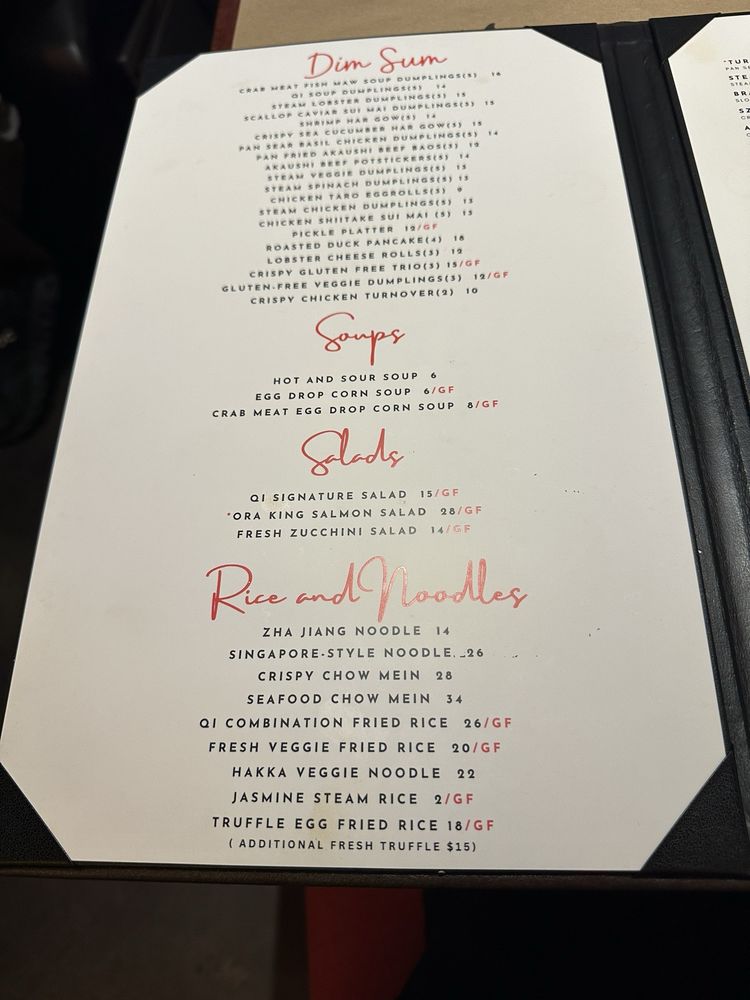 Dim Sum
CRAB MEAT FISH MAW SOUP DUMPLINGS(5) 16
QI SOUP DUMPLINGS(5) 14
STEAM LOBSTER DUMPLINGS(5) 15
SCALLOP CAVIAR SUI MAI DUMPLINGS(5) 15
SHRIMP HAR GOW(5) 14
CRISPY SEA CUCUMBER HAR GOW(5) 15
PAN SEAR BASIL CHICKEN DUMPLINGS(5) 14
PAN FRIED AKAUSHI BEEF BAOS(3) 12
AKAUSHI BEEF POTSTICKERS(5) 14
STEAM VEGGIE DUMPLINGS(5) 13
STEAM SPINACH DUMPLINGS(5) 13
CHICKEN TARO EGGROLLS(3) 9
STEAM CHICKEN DUMPLINGS(5) 13
CHICKEN SHIITAKE SUI MAI (5) 13
PICKLE PLATTER 12/GF
ROASTED DUCK PANCAKE(4) 18
LOBSTER CHEESE ROLLS(3) 12
CRISPY GLUTEN FREE TRIO(3) 15/GF
GLUTEN-FREE VEGGIE DUMPLINGS(3) 12/GF
CRISPY CHICKEN TURNOVER(2) 10
Soups
HOT AND SOUR SOUP 6
EGG DROP CORN SOUP 6/GF
CRAB MEAT EGG DROP CORN SOUP 8/GF
Salads
QI SIGNATURE SALAD 15/GF
*ORA KING SALMON SALAD 28/GF
FRESH ZUCCHINI SALAD 14/GF
Rice and Noodles
ZHA JIANG NOODLE 14
SINGAPORE-STYLE NOODLE 26
CRISPY CHOW MEIN 28
SEAFOOD CHOW MEIN 34
QI COMBINATION FRIED RICE 26/GF
FRESH VEGGIE FRIED RICE 20/GF
HAKKA VEGGIE NOODLE 22
JASMINE STEAM RICE 2/GF
TRUFFLE EGG FRIED RICE 18/GF
( ADDITIONAL FRESH TRUFFLE $15)